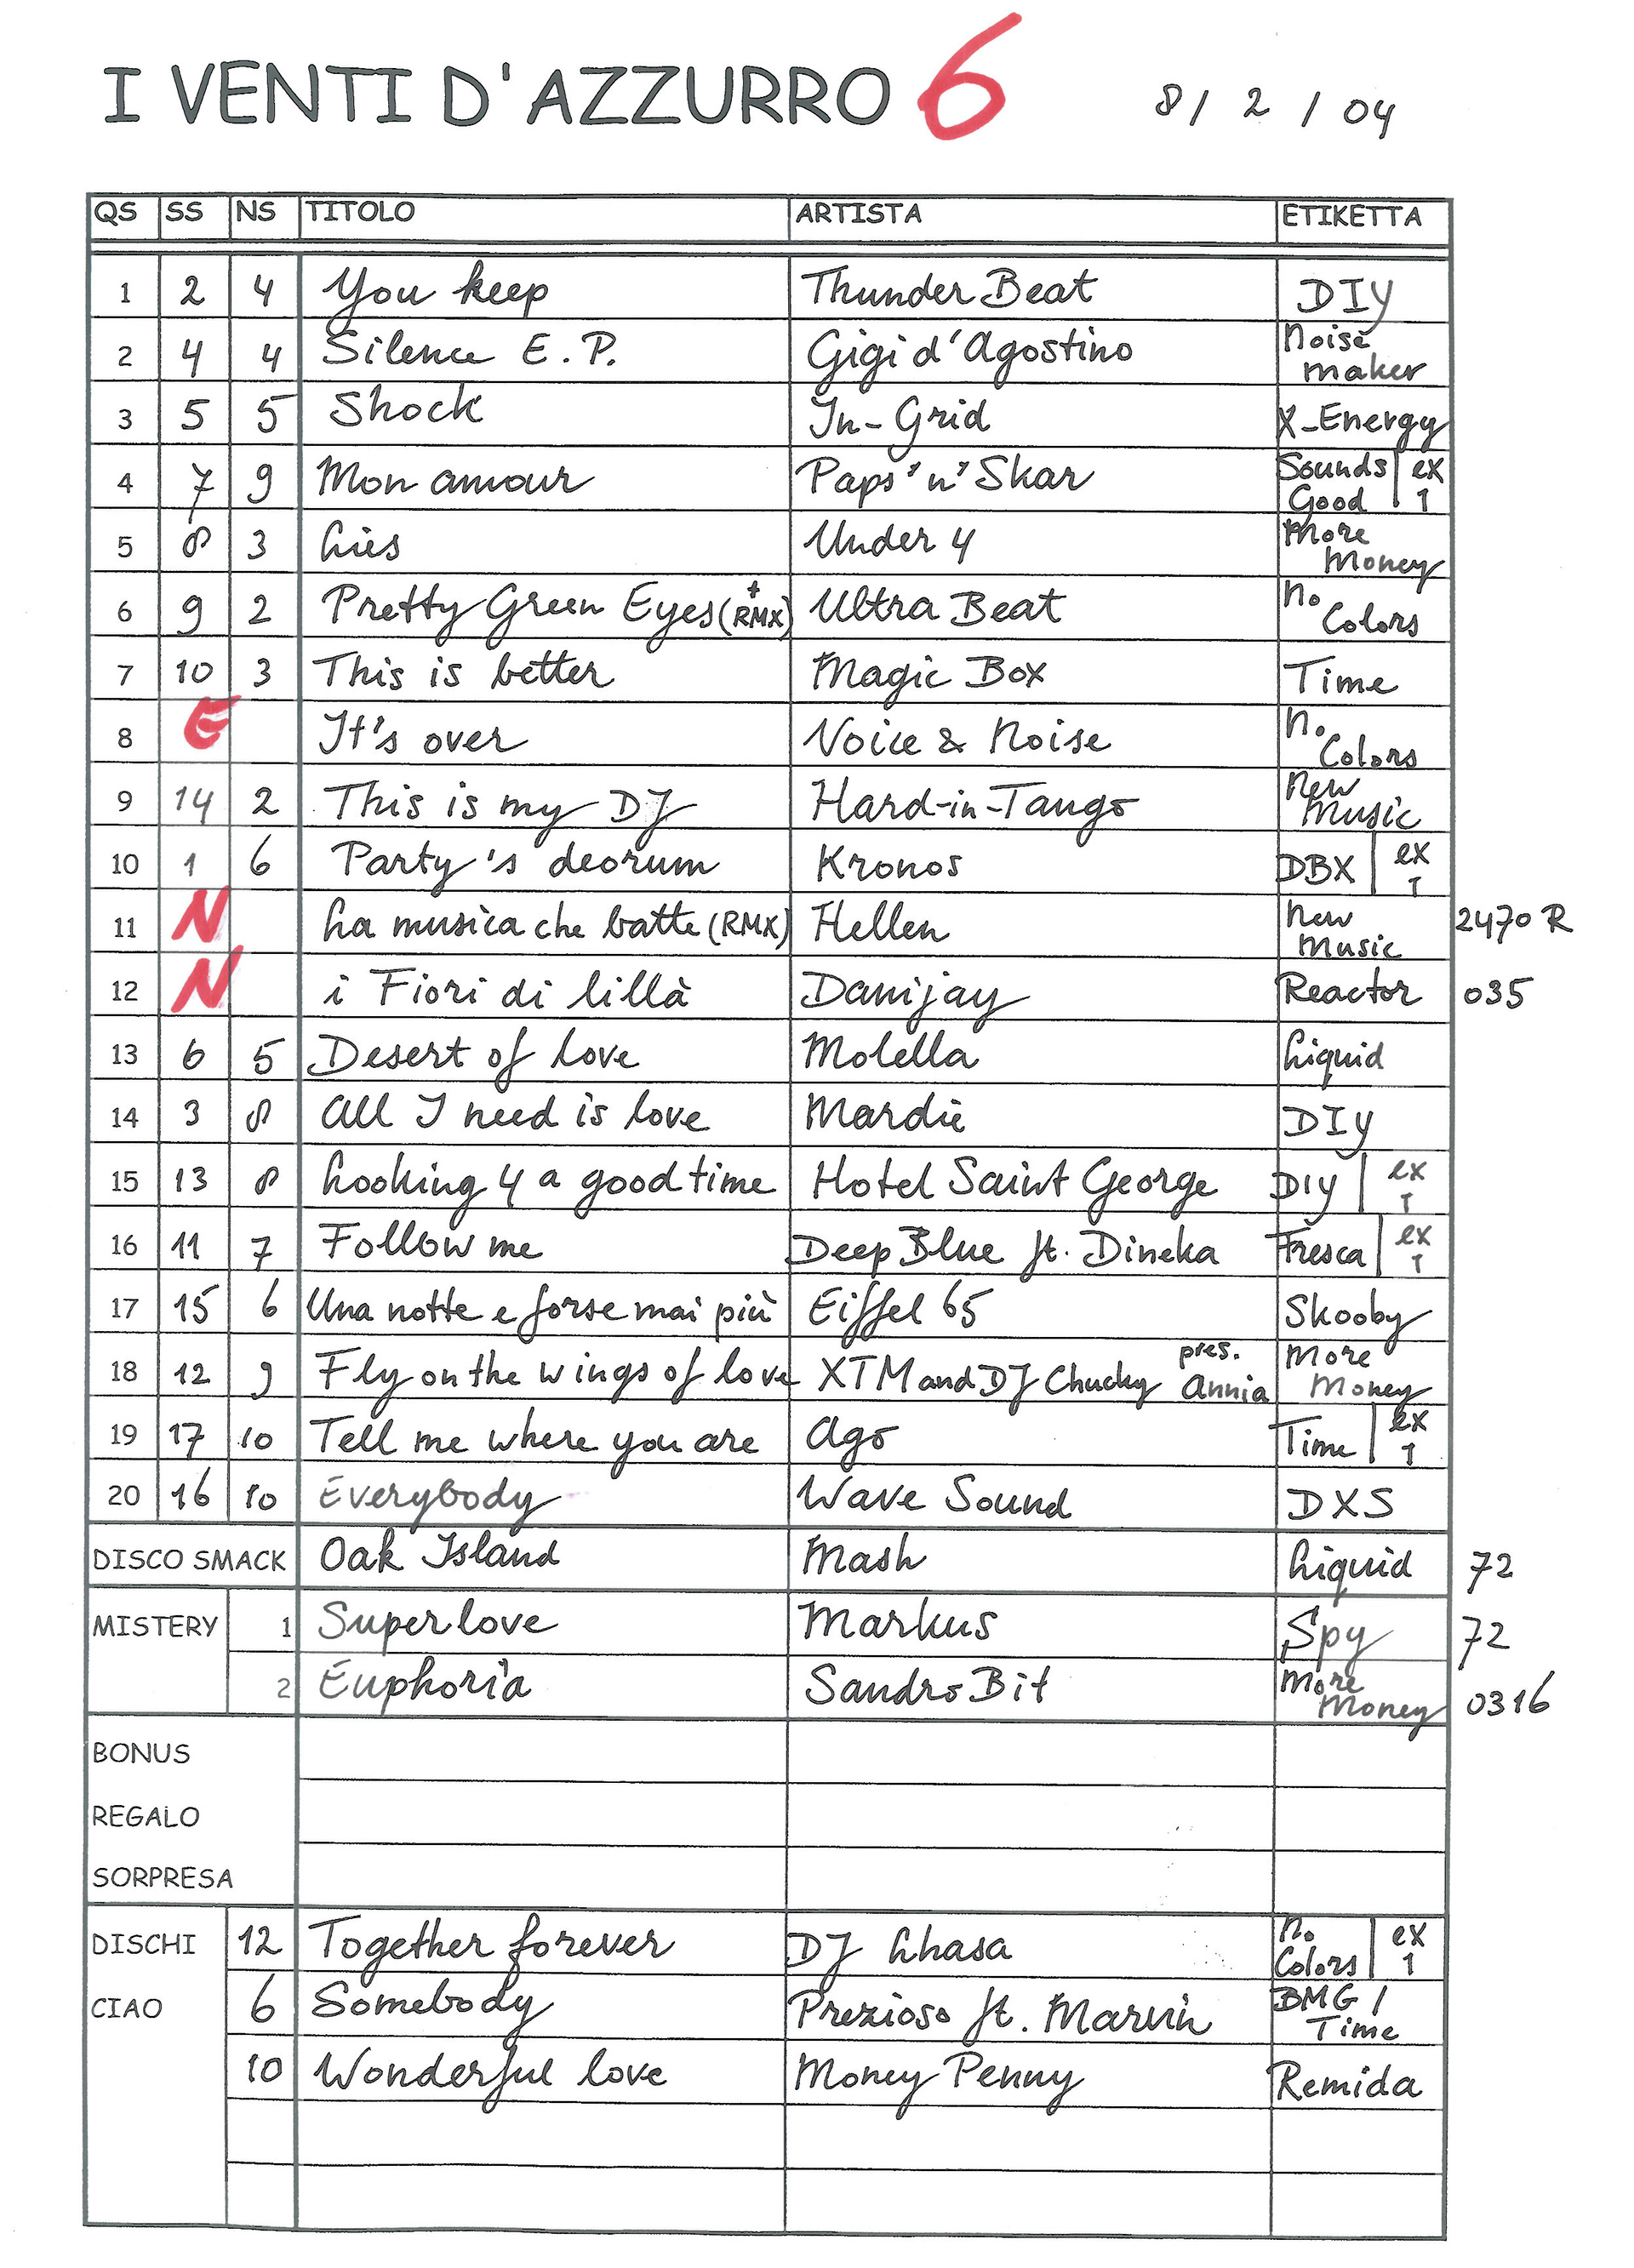 I VENTI D'AZZURRO 6 8/2/04
QS SS NS TITOLO ARTISTA ETIKETTA
1 2 4 You keep Thunder Beat DIY
2 4 4 Silence E.P. Gigi d'Agostino Noise maker
3 5 5 Shock In-Grid X-Energy
4 7 9 Mon amour Paps'n'Skar Sounds Good ex 1
5 8 3 Lies Under 4 More Money
6 9 2 Pretty Green Eyes (+ RMX) Ultra Beat no. Colors
7 10 3 This is better Magic Box Time
8 E It's over Voice & Noise n. Colors
9 14 2 This is my DJ Hard-in-Tango New Music
10 1 6 Party's deorum Kronos DBX ex 1
11 N La musica che batte (RMX) Hellen New Music 2470 R
12 N i Fiori di lillà Danijay Reactor 035
13 6 5 Desert of love Molella Liquid
14 3 8 All I need is love Mardie DIY
15 13 8 Looking 4 a good time Hotel Saint George DIY ex 1
16 11 7 Follow me Deep Blue ft. Dineka Fresca ex 1
17 15 6 Una notte e forse mai più Eiffel 65 Skooby
18 12 9 Fly on the wings of love XTM and DJ Chucky pres. Annia More Money
19 17 10 Tell me where you are Ago Time ex 1
20 16 10 Everybody Wave Sound DXS
DISCO SMACK Oak Island Mash Liquid 72
MISTERY 1 Superlove Markus Spy 72
2 Euphoria Sandro Bit More Money 0316
BONUS
REGALO
SORPRESA
DISCHI 12 Together forever DJ Lhasa no. Colors ex 1
CIAO 6 Somebody Prezioso ft. Marvin BMG / Time
10 Wonderful love Money Penny Remida